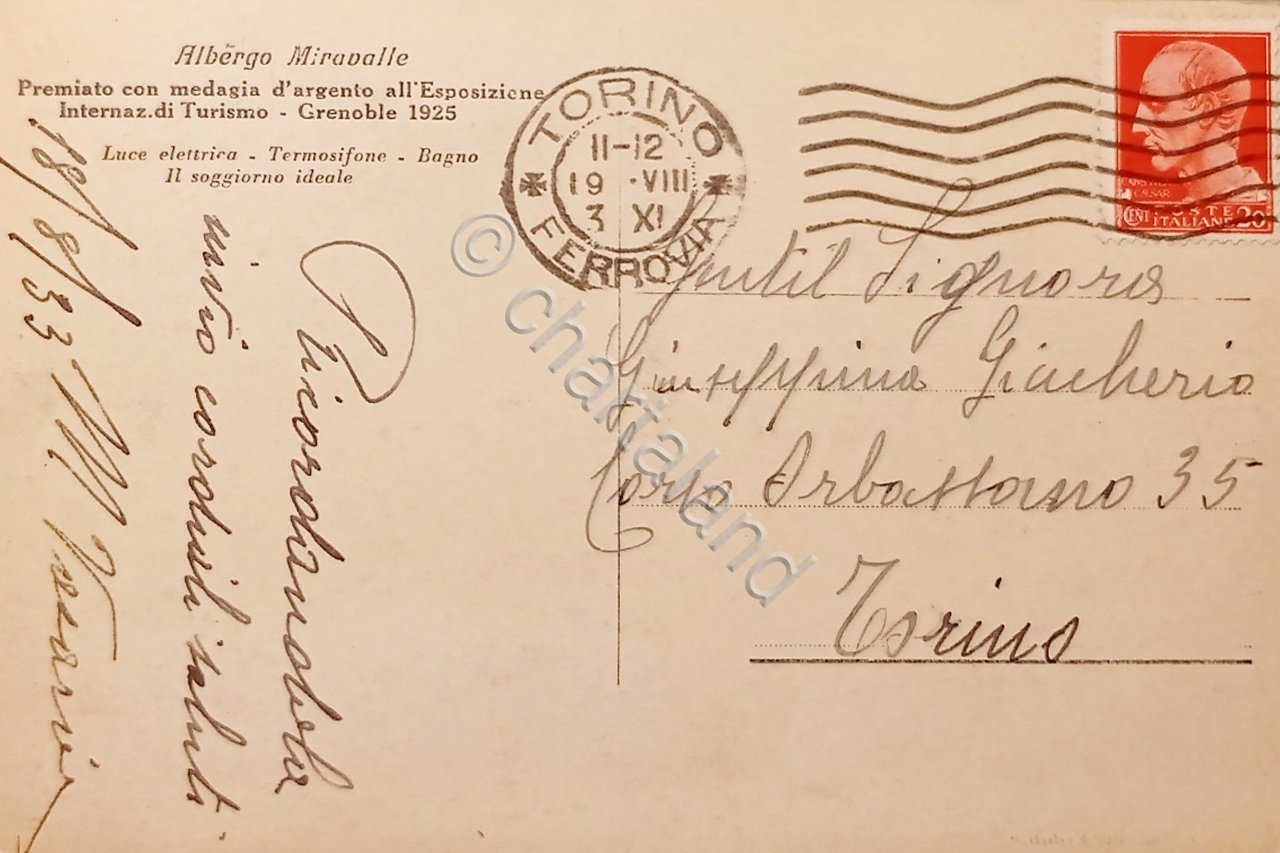 Albergo Miravalle
Premiato con medagia d'argento all'Esposizione
Internaz. di Turismo - Grenoble 1925
Luce elettrica - Termosifone - Bagno
Il soggiorno ideale
Ricordandola
invio cordiali saluti
18/8/33 M
TORINO
11-12
19 · VIII
3 XI
FERROVIA
CAESAR
CENT POSTE
ITALIANE 20
Gentil Signora
Giuseppina Giacherio
Corso Orbassano 35
Torino
© chartaland